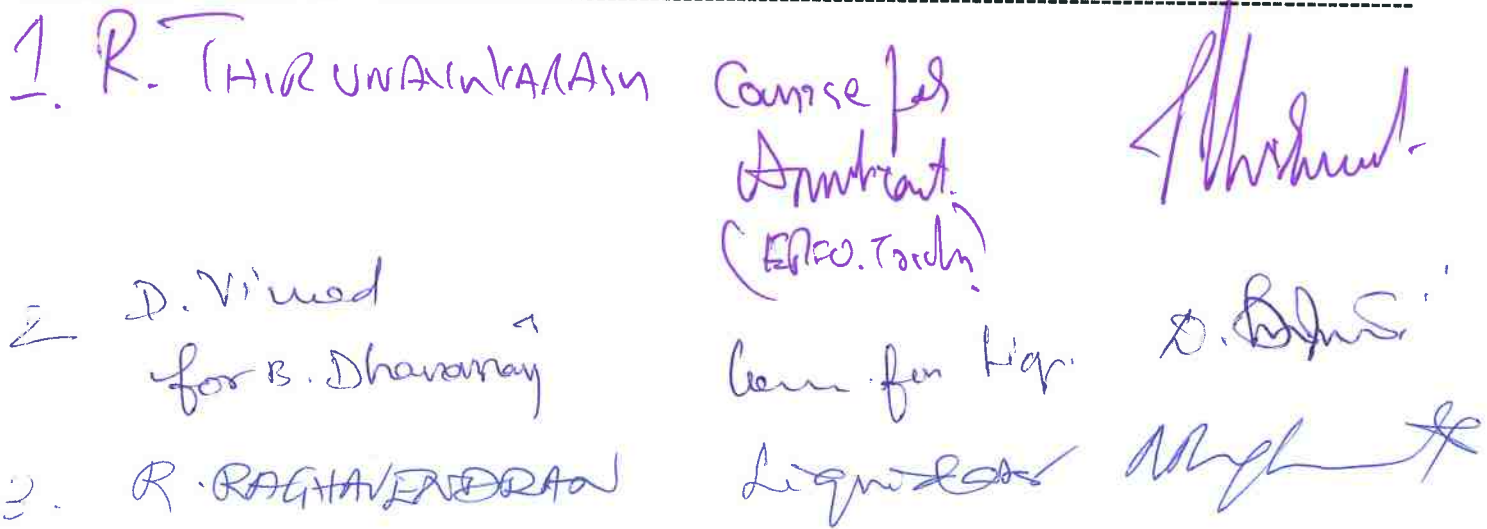 1. R. THIRUNAVUKARASU Counsel for
Applicant.
(EPFO. Trichy)
2 D. Vimod
for B. Dhavanraj Coun for Liqr.
3. R. RAGHAVENDRAN Liquidator